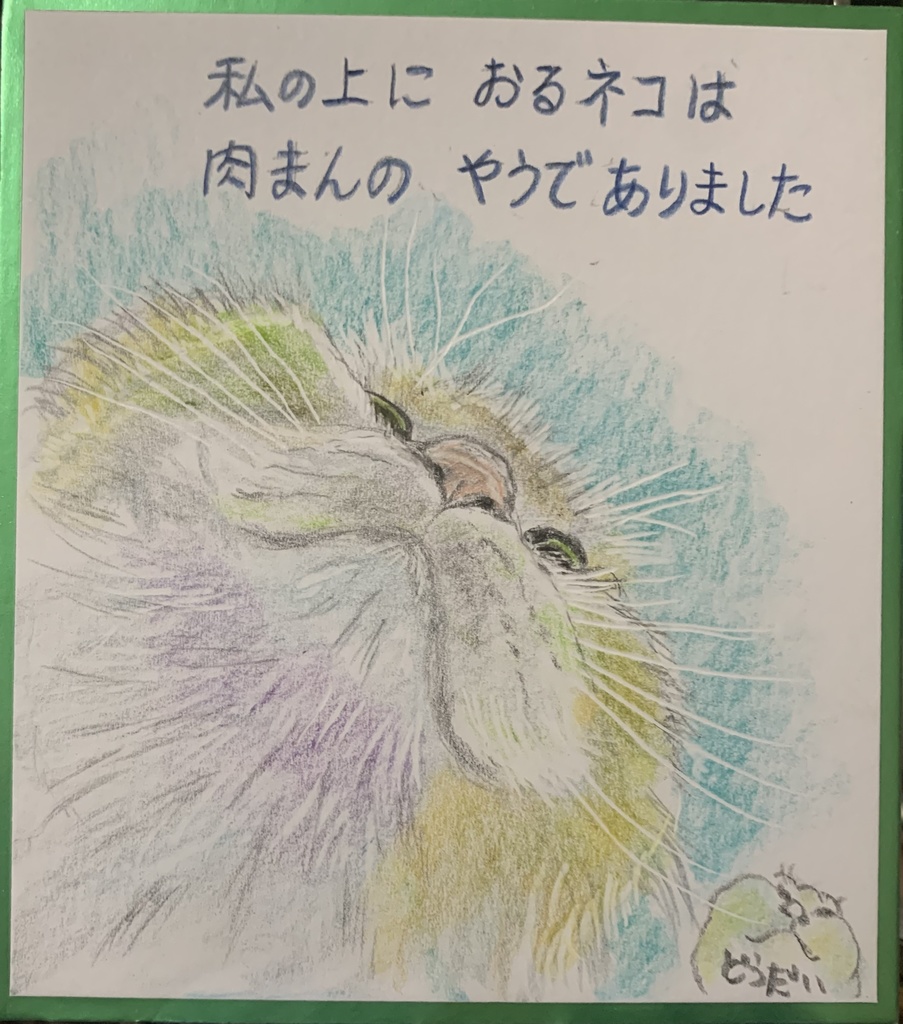 私の上に おるネコは
肉まんの やうでありました
どうだい